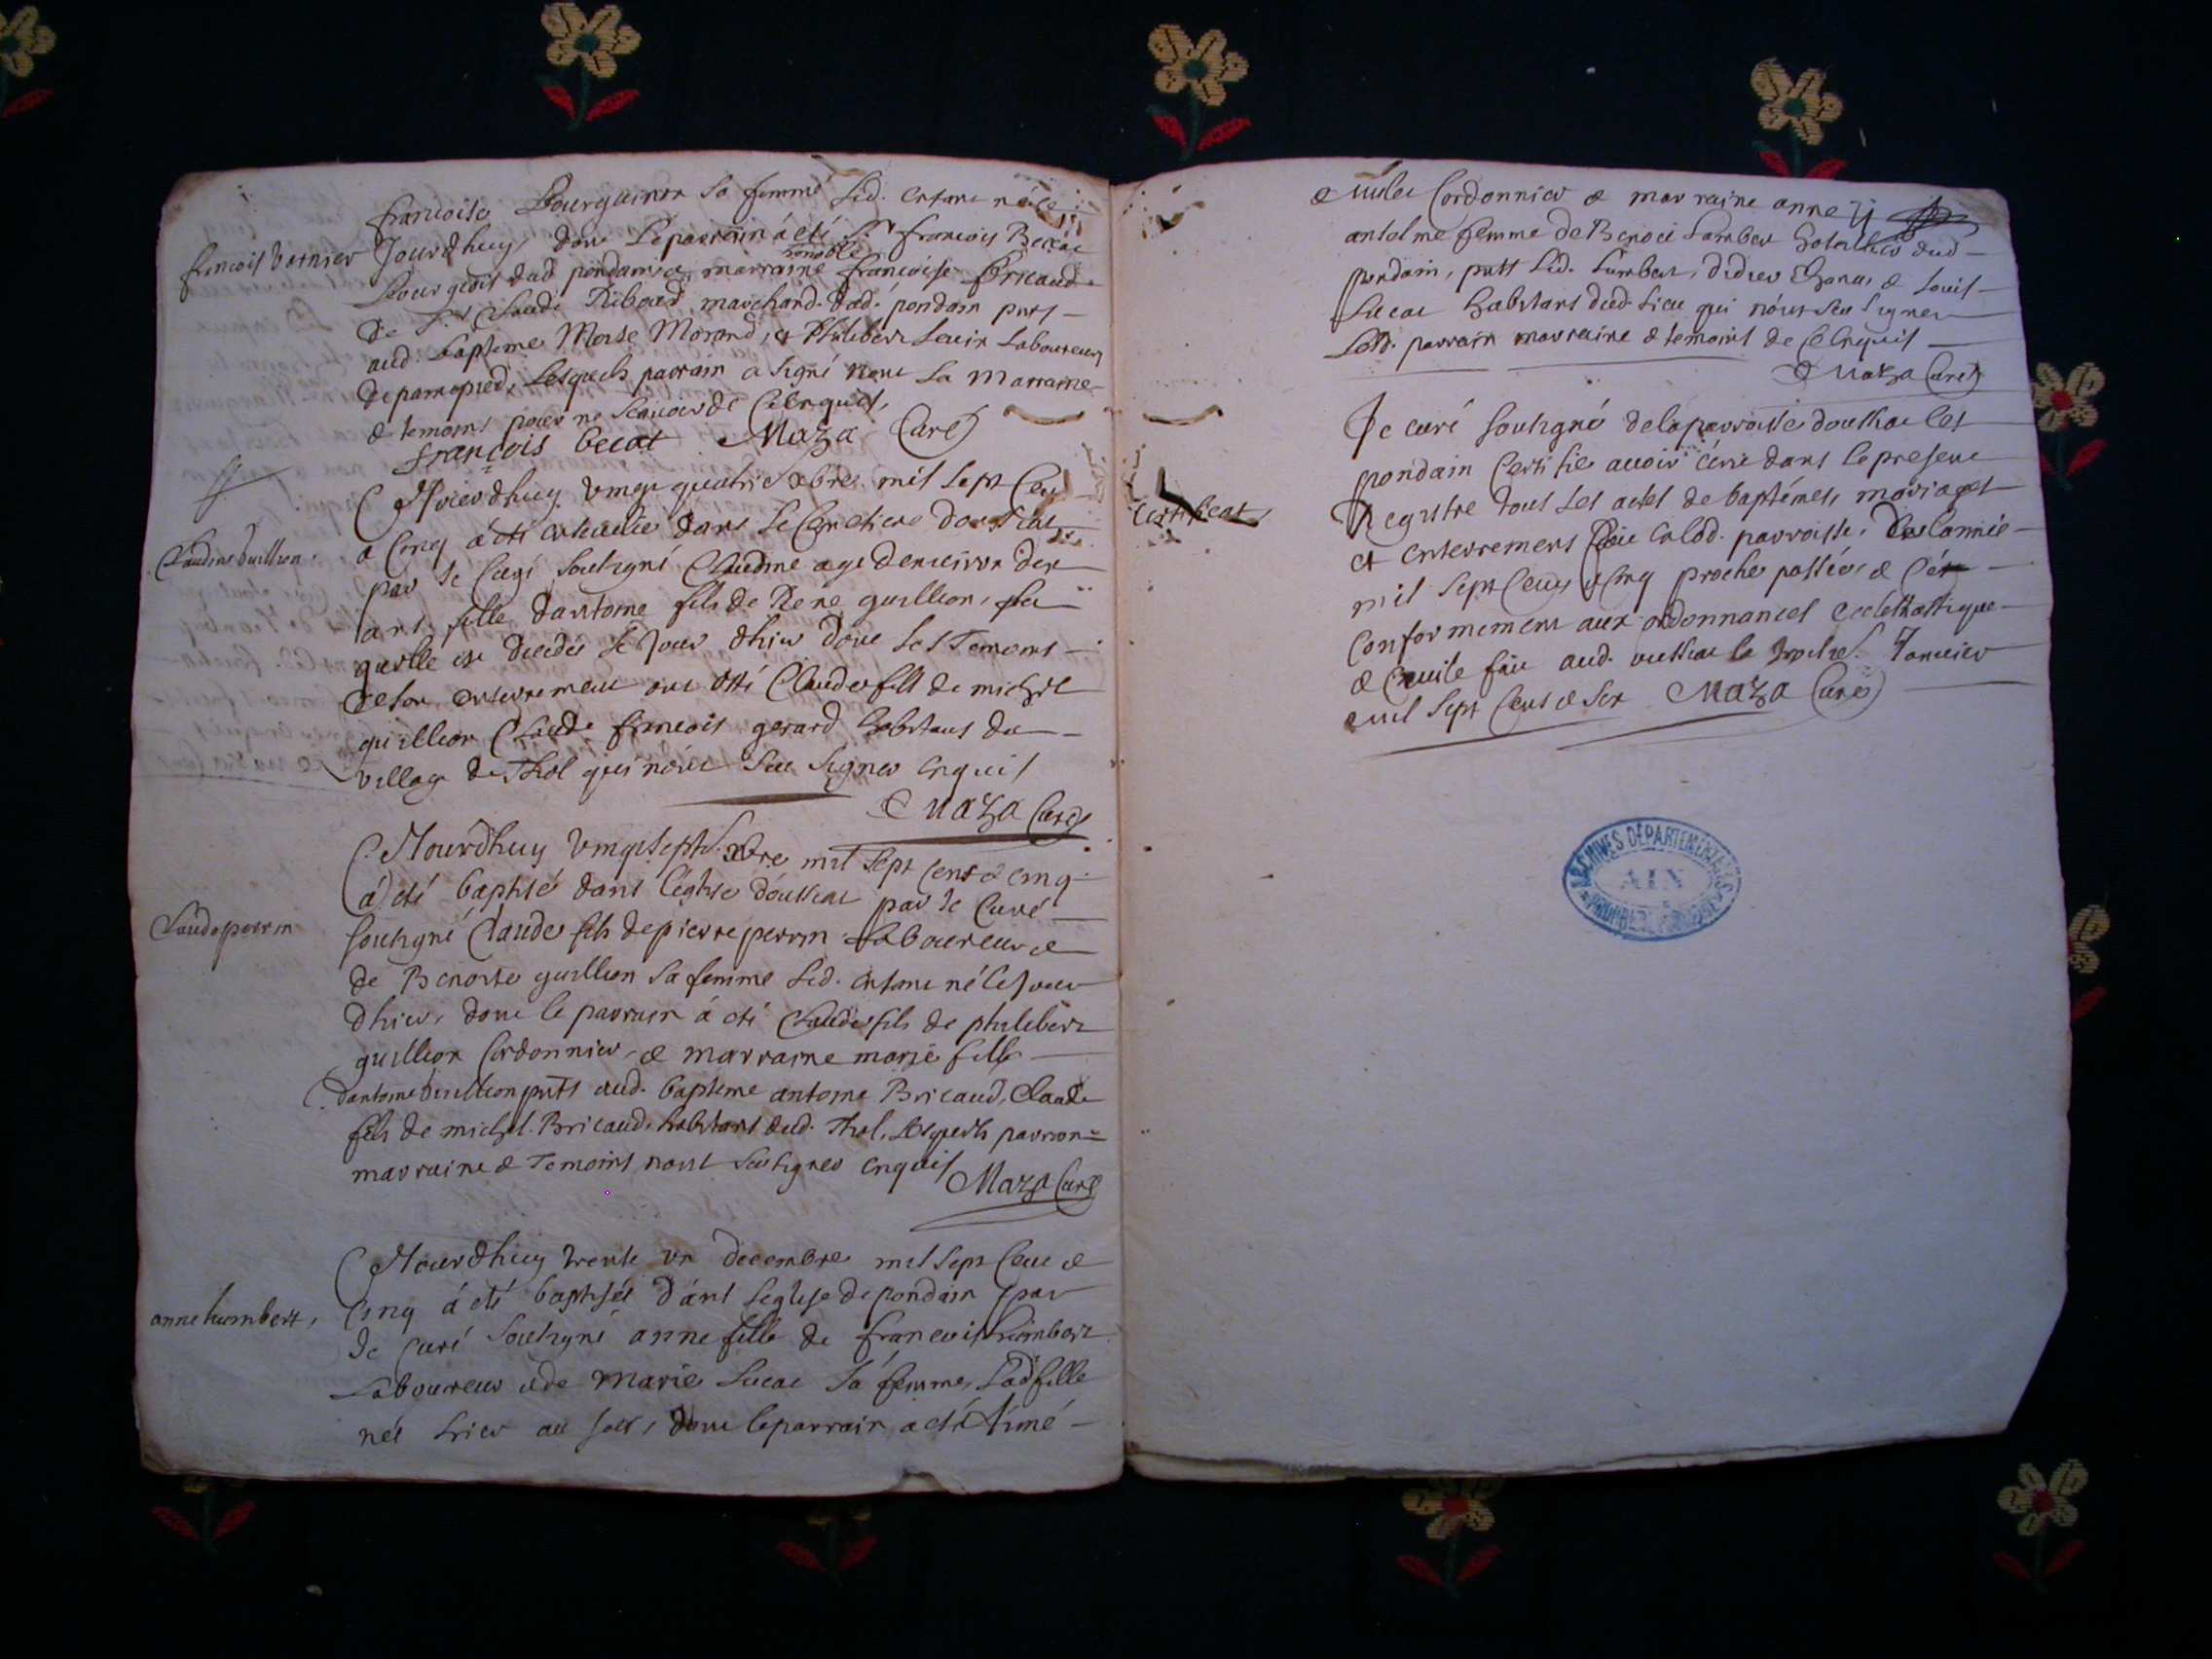 francoise Bourguinon sa femme led. enfant né ce
francois varnier
Jourdhuy, dont Le parrain á eté Sr francois Beccat
Bourgeois dud pondain et marraine honoble francoise Bricaud
de Sr Claude Riboud marchand dud. pondain pnts
aud. bapteme Moise Morand, et Philibert Levin Laboureurs
de pamepied, Lesquels parrain a signé non la Marraine
& temoins pour ne scauoir de ce enquis,
françois becat Maza Curé
Claudine Guillion
Ajourdhuy vingt quatrie xbre mil sept Cent
& Cinq á eté enterrée dans le Cemetiere doussiat
par le Curé soussigné Claudine agé denuiron dix
ans fille dantoine fils de René guillion, la
quelle est decedée le jour dhier dont les Temoins
de son enterrement ont esté Claude fils de michel
guillion Claude francois gerard habitans du
village de Thol qui nónt sceu signer enquis
Maza Curé
Claude perrin
Ajourdhuy vingt sept xbre mil sept cent & cinq
á eté baptisé dans léglise doussiat par le Curé
soussigné Claude fils de pierre perrin Laboureur &
de Benoite guillion sa femme led. enfant né le jour
dhier, dont le parrain á eté Claude fils de philibert
guillion Cordonnier, & marraine marie fille
dantoine Guillion pnts aud. bapteme antoine Bricaud, Claude
fils de michel Bricaud habitans dud. Thol, Lesquels parrain
marraine & Temoins nont sceu signer enquis
Maza Curé
anne humbert,
Ajourdhuy trente un decembre mil sept Cent &
Cinq á eté baptisée dáns léglise de pondain par
le Curé soussigné anne fille de francois humbert
Laboureur & de Marie Lucat sa femme, Lad fille
née hier au soir, dont le parrain a eté Aimé
Cordonnier & marraine anne
antelme femme de Benoit Lambert hotellier dud
pondain, pntt Led. Lambert, didier & Louis
Lucat habitans dud. Lieu qui nónt sceu signer
Lesd. parrain marraine & temoins de ce enquis
Maza Curé
Certificat
Je curé soussigné de la parroisse doussiat les
pondain Certifie auoir écrit dans le present
Registre tous les actes de baptémes, mariages
et enterremens fait en lad. parroisse, de lannée
mil sept Cens & Cinq proche passée & cé
Conformement aux ordonnances ecclesiastique
& Ciuile fait aud. oussiat le Januier
mil sept Cens & six Maza Curé
ARCHIVES DÉPARTEMENTALES
AIN